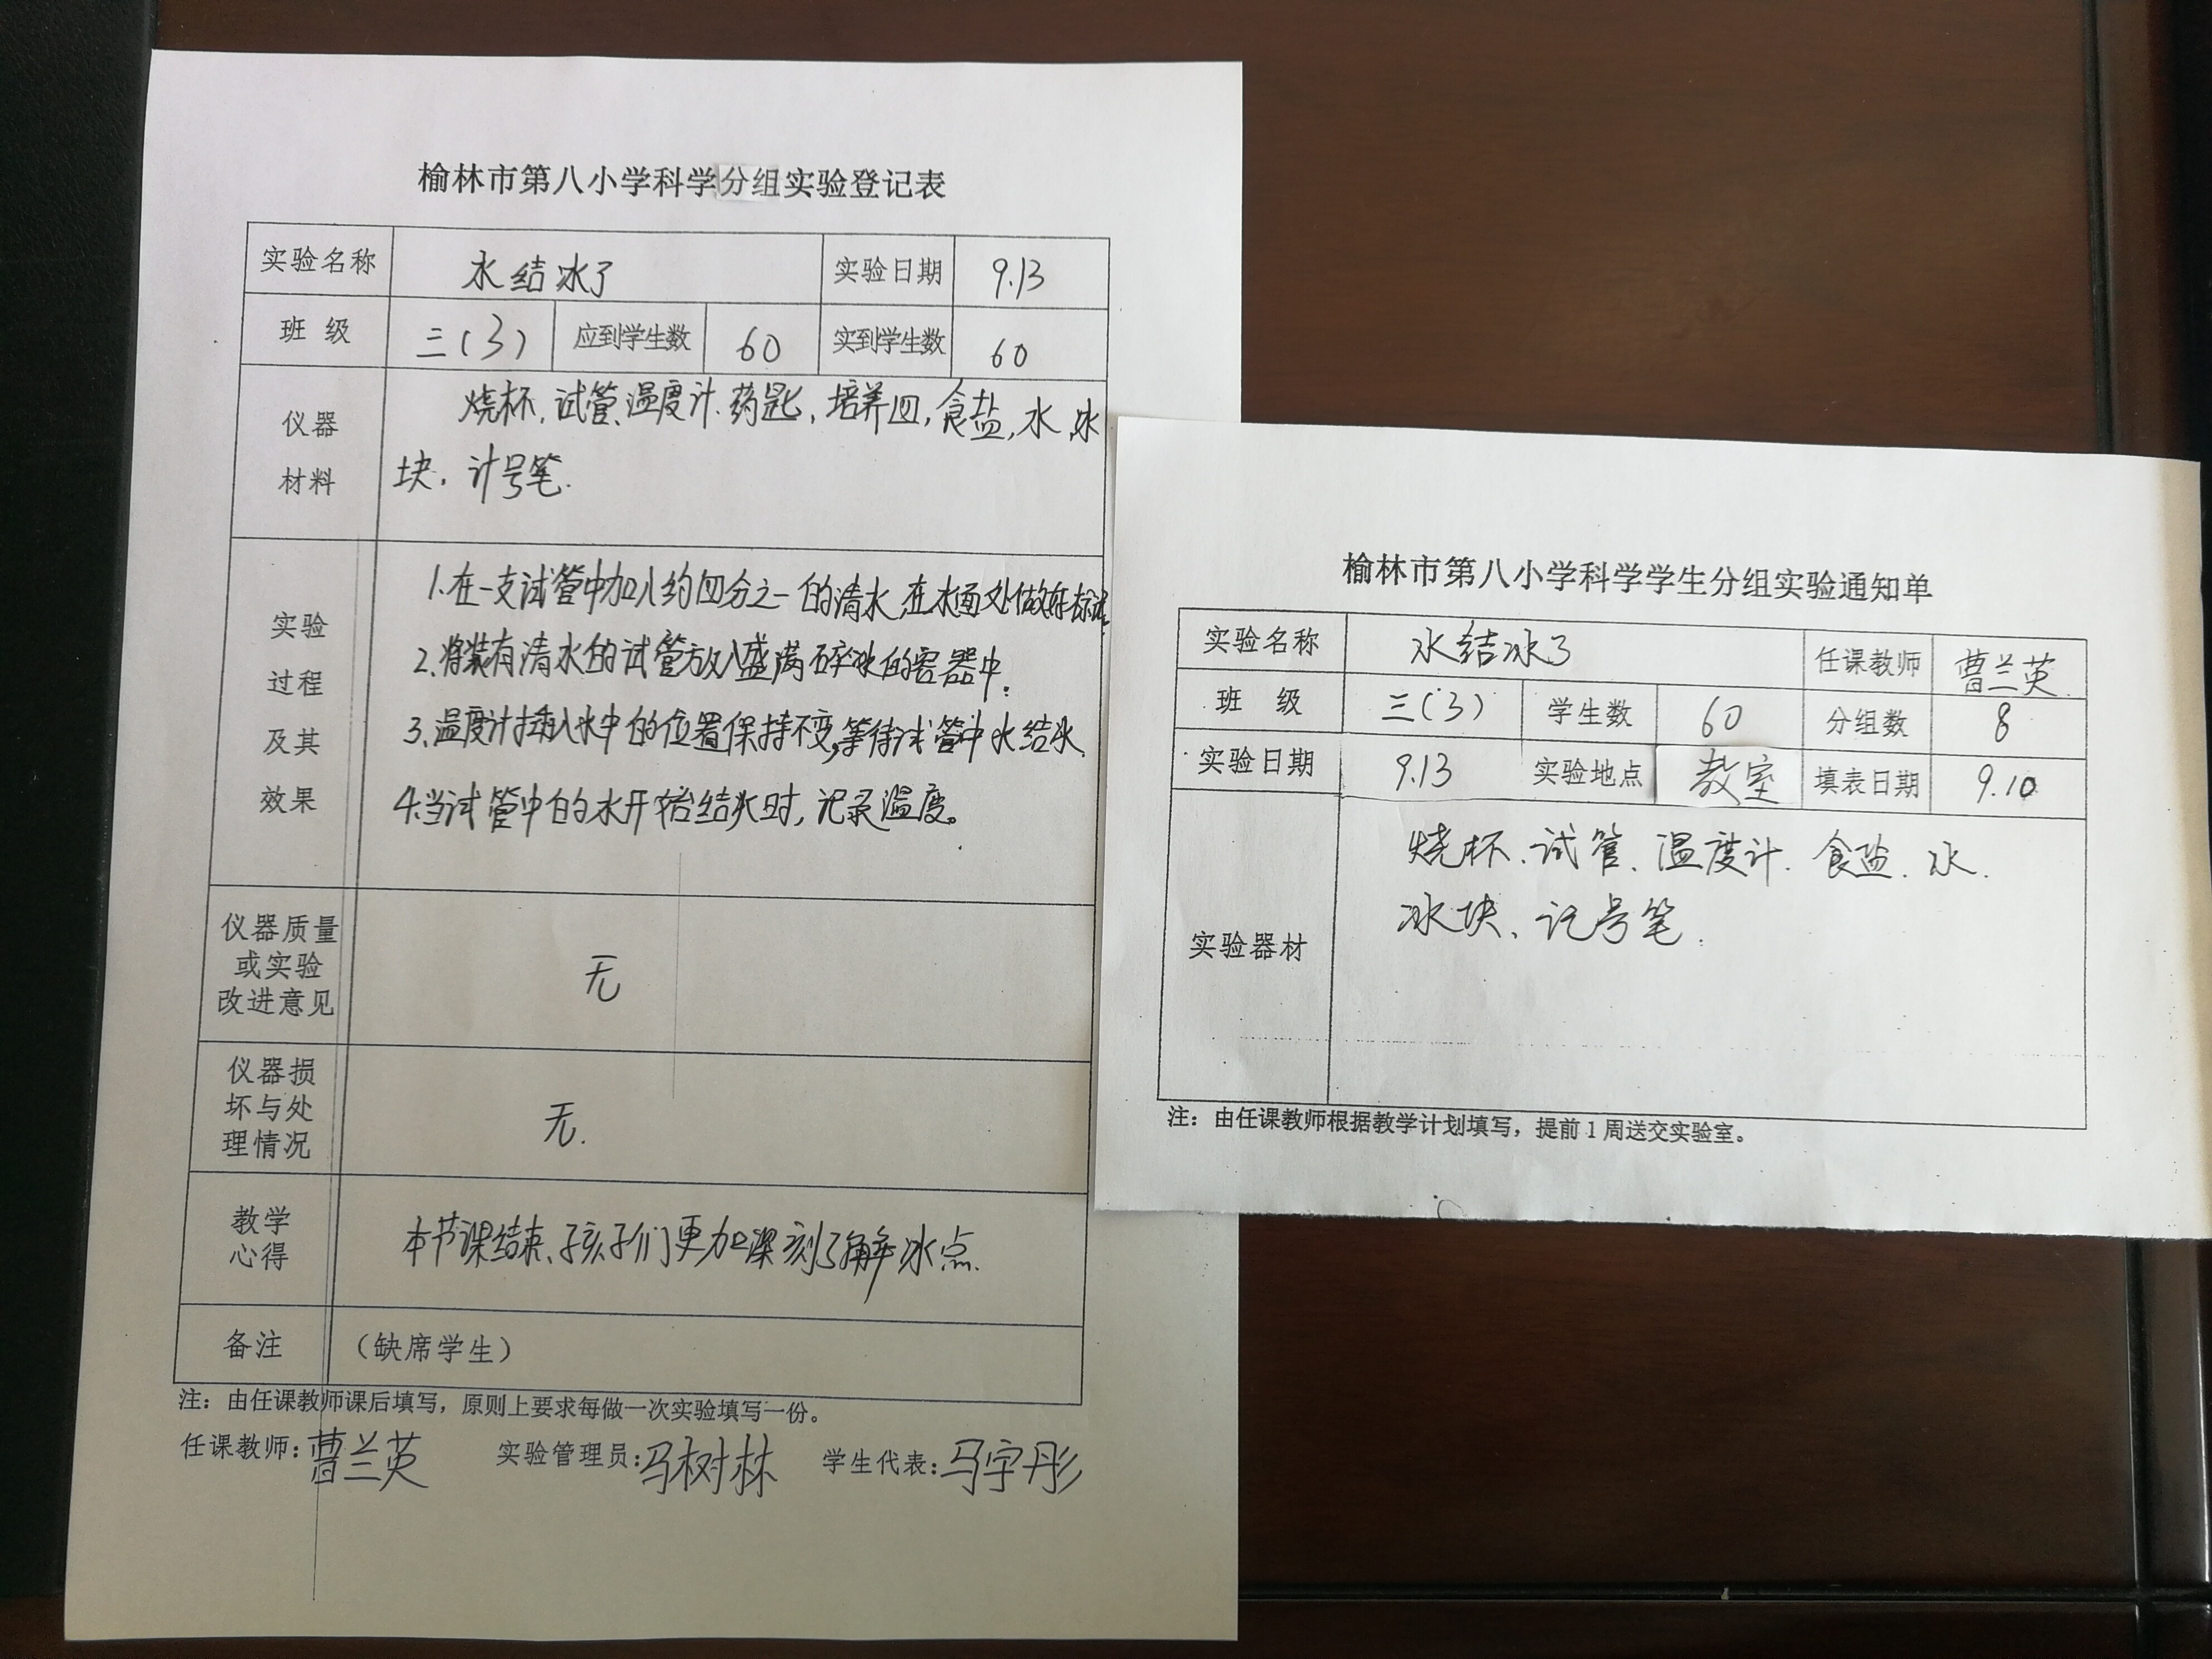 榆林市第八小学科学分组实验登记表
实验名称 水结冰了 实验日期 9.13
班 级 三(3) 应到学生数 60 实到学生数 60
仪器
材料
烧杯、试管、温度计、药匙、培养皿、食盐、水、冰
块、计号笔.
实验
过程
及其
效果
1.在一支试管中加入约四分之一的清水,在水面处做好标记。
2.将装有清水的试管放入盛满碎冰的容器中.
3.温度计插入水中的位置保持不变,等待试管中水结冰.
4.当试管中的水开始结冰时,记录温度。
仪器质量
或实验
改进意见
无
仪器损
坏与处
理情况
无.
教学
心得
本节课结束、孩子们更加深刻了解冰点.
备注 (缺席学生)
注:由任课教师课后填写,原则上要求每做一次实验填写一份。
任课教师:曹兰英 实验管理员:马树林 学生代表:马宇彤
榆林市第八小学科学学生分组实验通知单
实验名称 水结冰了 任课教师 曹兰英.
班 级 三(3) 学生数 60 分组数 8
实验日期 9.13 实验地点 教室 填表日期 9.10
实验器材
烧杯、试管、温度计、食盐、水.
冰块、记号笔.
注:由任课教师根据教学计划填写,提前1周送交实验室。